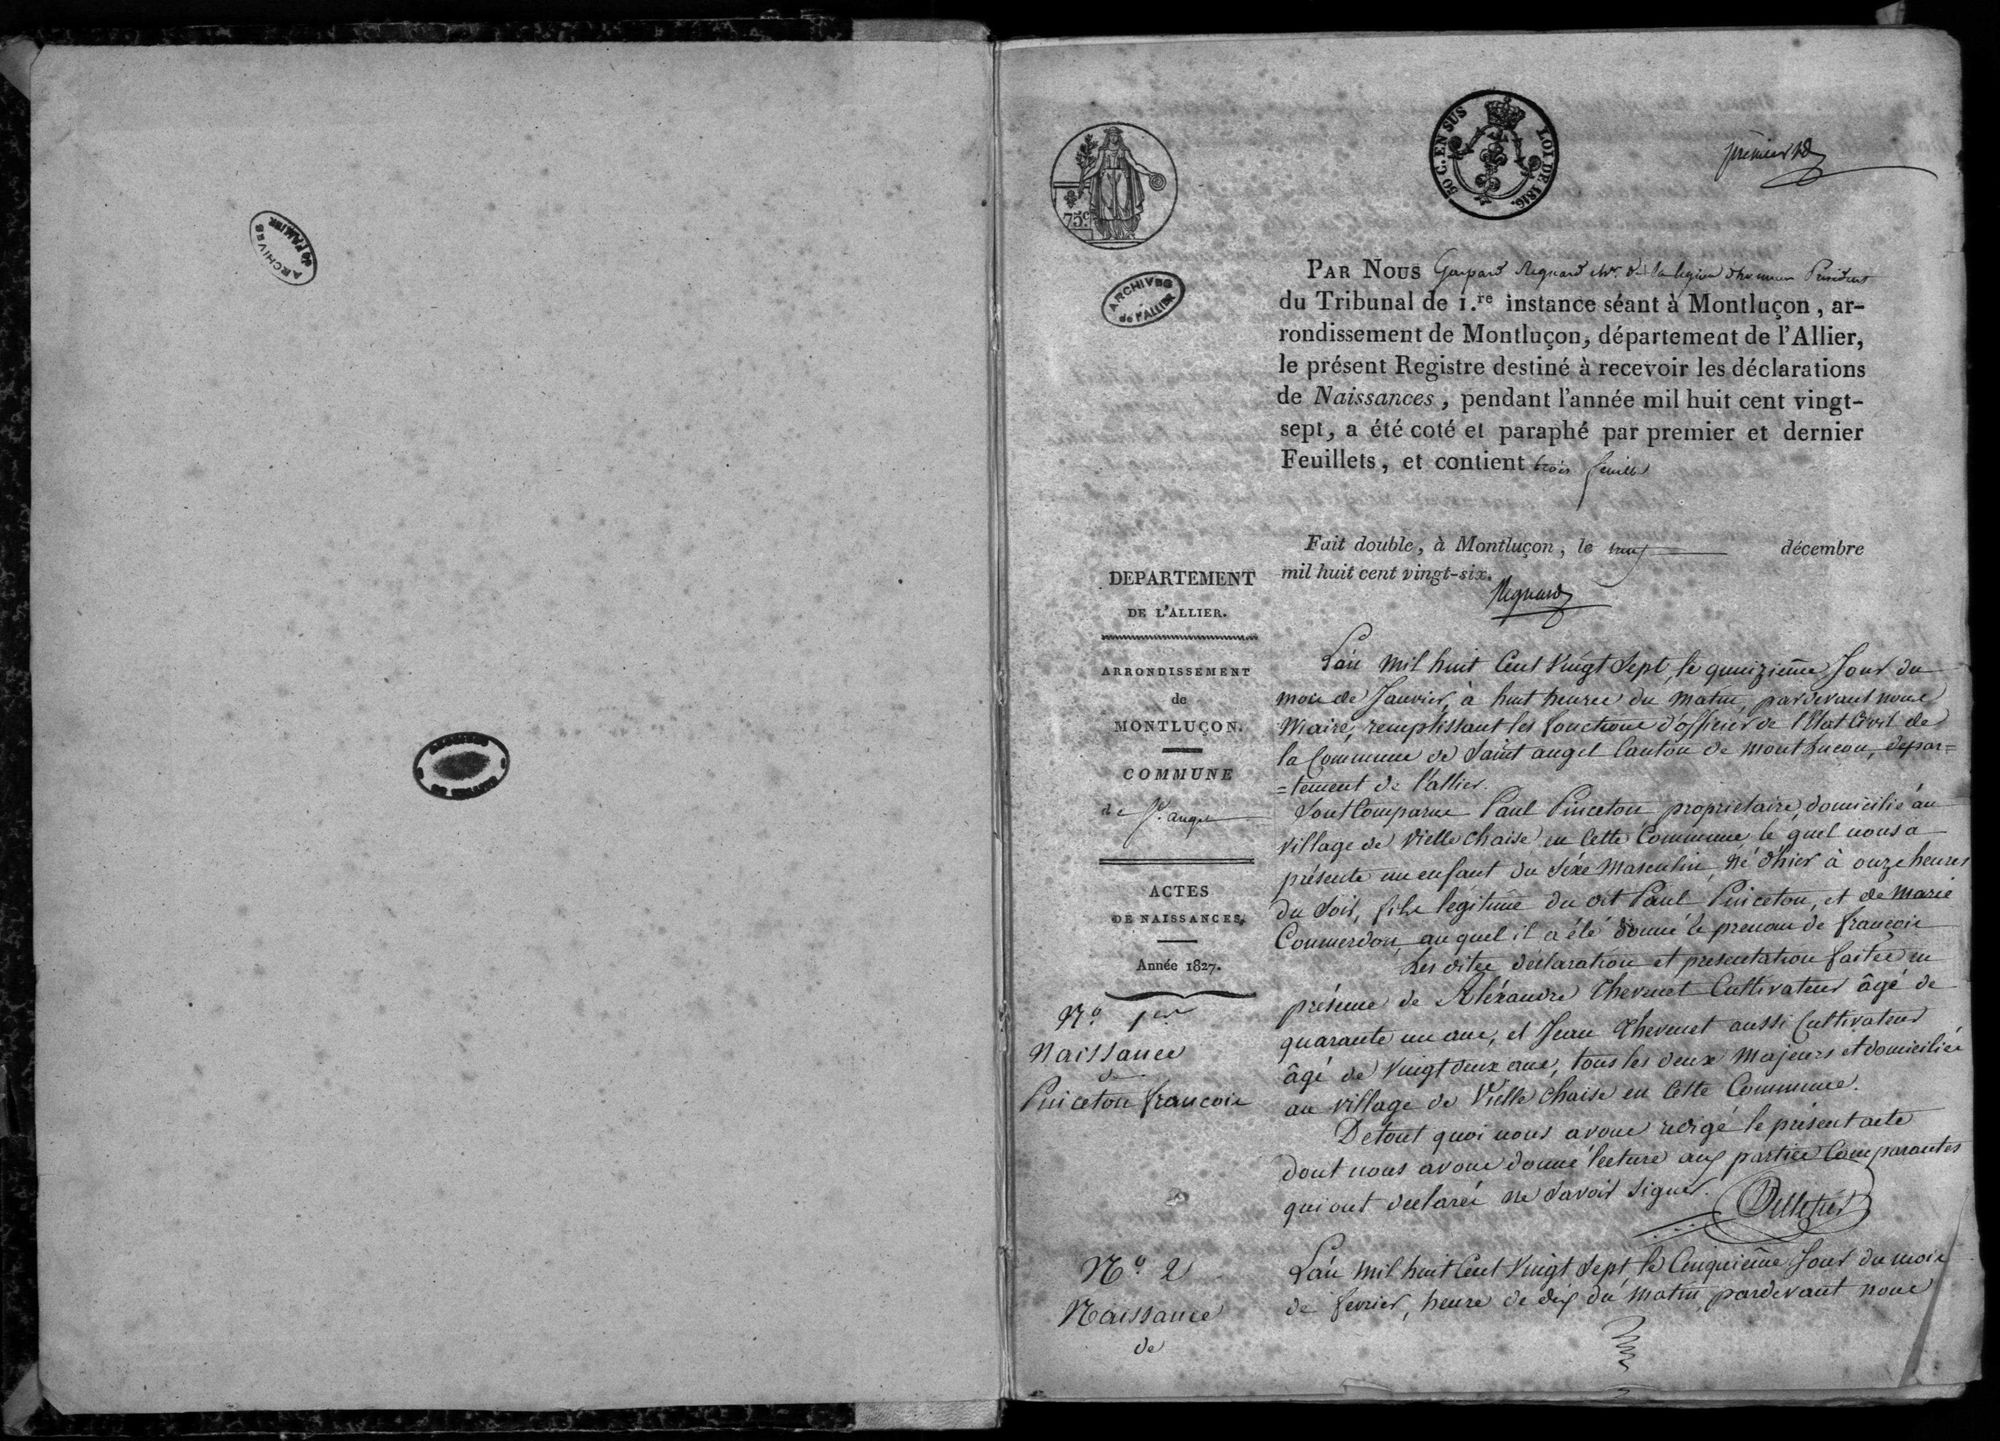 ARCHIVES
de l'ALLIER
75c.
50 C. EN SUS
LOI DE 1816.
premier
ARCHIVES
de l'ALLIER
PAR NOUS Gaspard Regnard chr. de la légion d'honneur Président
du Tribunal de 1.re instance séant à Montluçon, ar-
rondissement de Montluçon, département de l'Allier,
le présent Registre destiné à recevoir les déclarations
de Naissances, pendant l'année mil huit cent vingt-
sept, a été coté et paraphé par premier et dernier
Feuillets, et contient trois feuillets
Fait double, à Montluçon, le neuf décembre
mil huit cent vingt-six.
Regnard
DEPARTEMENT
DE L'ALLIER.
ARRONDISSEMENT
de
MONTLUÇON.
COMMUNE
de St. angel
ACTES
DE NAISSANCES,
Année 1827.
No. 1er
Naissance
de
Pinceton francois
L'an mil huit Cent vingt Sept, le quinzième Jour du
mois de Janvier, à huit heures du matin, pardevant nous
Maire, remplissant les fonctions d'officier de l'Etat Civil de
la Commune de Saint angel Canton de montlucon, depar=
=tement de l'allier.
Sont Comparus Paul Pinceton, propriétaire, domicilié au
village de Vielle chaise en Cette Commune, le quel nous a
présenté un enfant du Séxe Masculin, né d'hier à onze heures
du Soir, fils légitime du dit Paul Pinceton, et de Marie
Commerdon, auquel il a été donné le prenom de francois
Les dites declaration et presentation faites en
présence de Aléxandre Thevenet Cultivateur âgé de
quarante un ans, et Jean Thevenet aussi Cultivateur
âgé de vingt deux ans, tous les deux Majeurs et domiciliés
au village de Vielle chaise en Cette Commune.
De tout quoi nous avons redigé le présent acte
dont nous avons donné lecture aux parties Comparantes
qui ont declarés ne Savoir Signer.
Pelletier
No. 2
Naissance
de
L'an mil huit Cent vingt Sept, le Cinquième Jour du mois
de fevrier, heure de dix du matin, pardevant nous